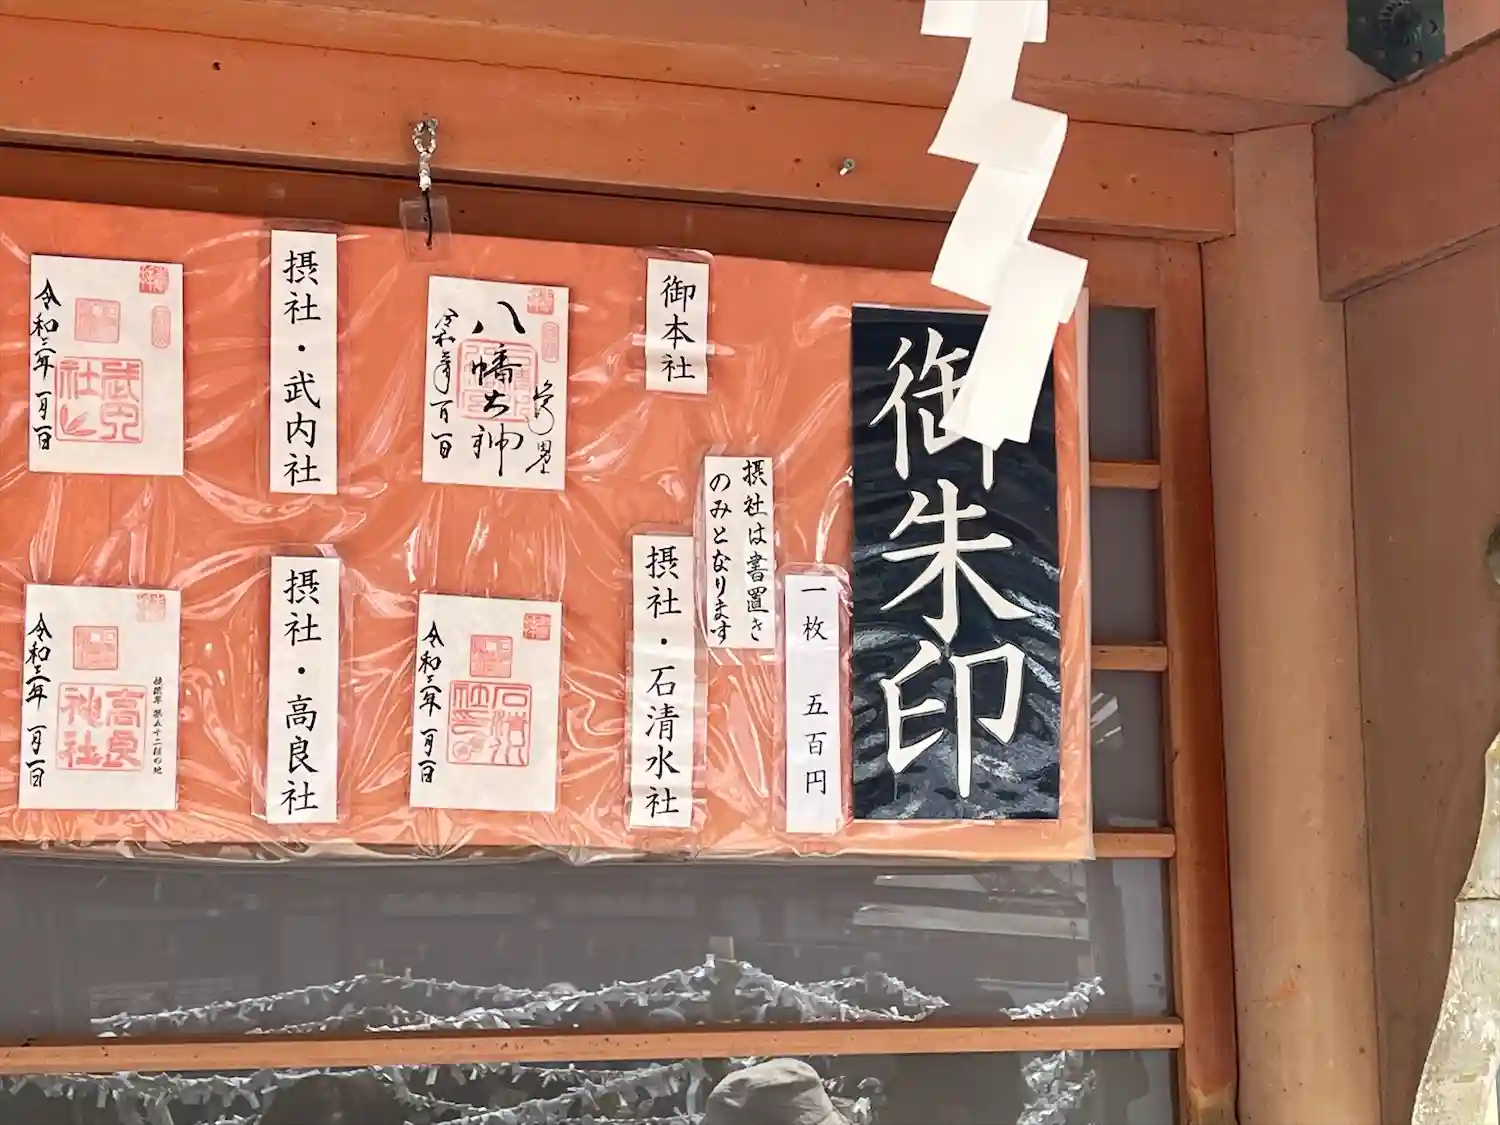 御朱印
一枚 五百円
摂社は書置き
のみとなります
御本社
八幡大神
摂社・石清水社
令和三年 一月一日
摂社・武内社
令和三年 一月一日
武内
社
摂社・高良社
令和三年 一月一日
高良
神社